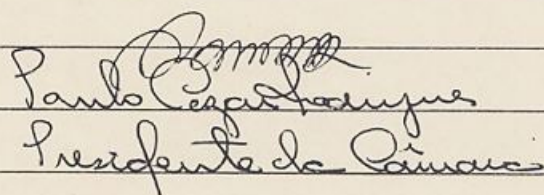 Paulo Cezar Rodrigues
Presidente da Câmara